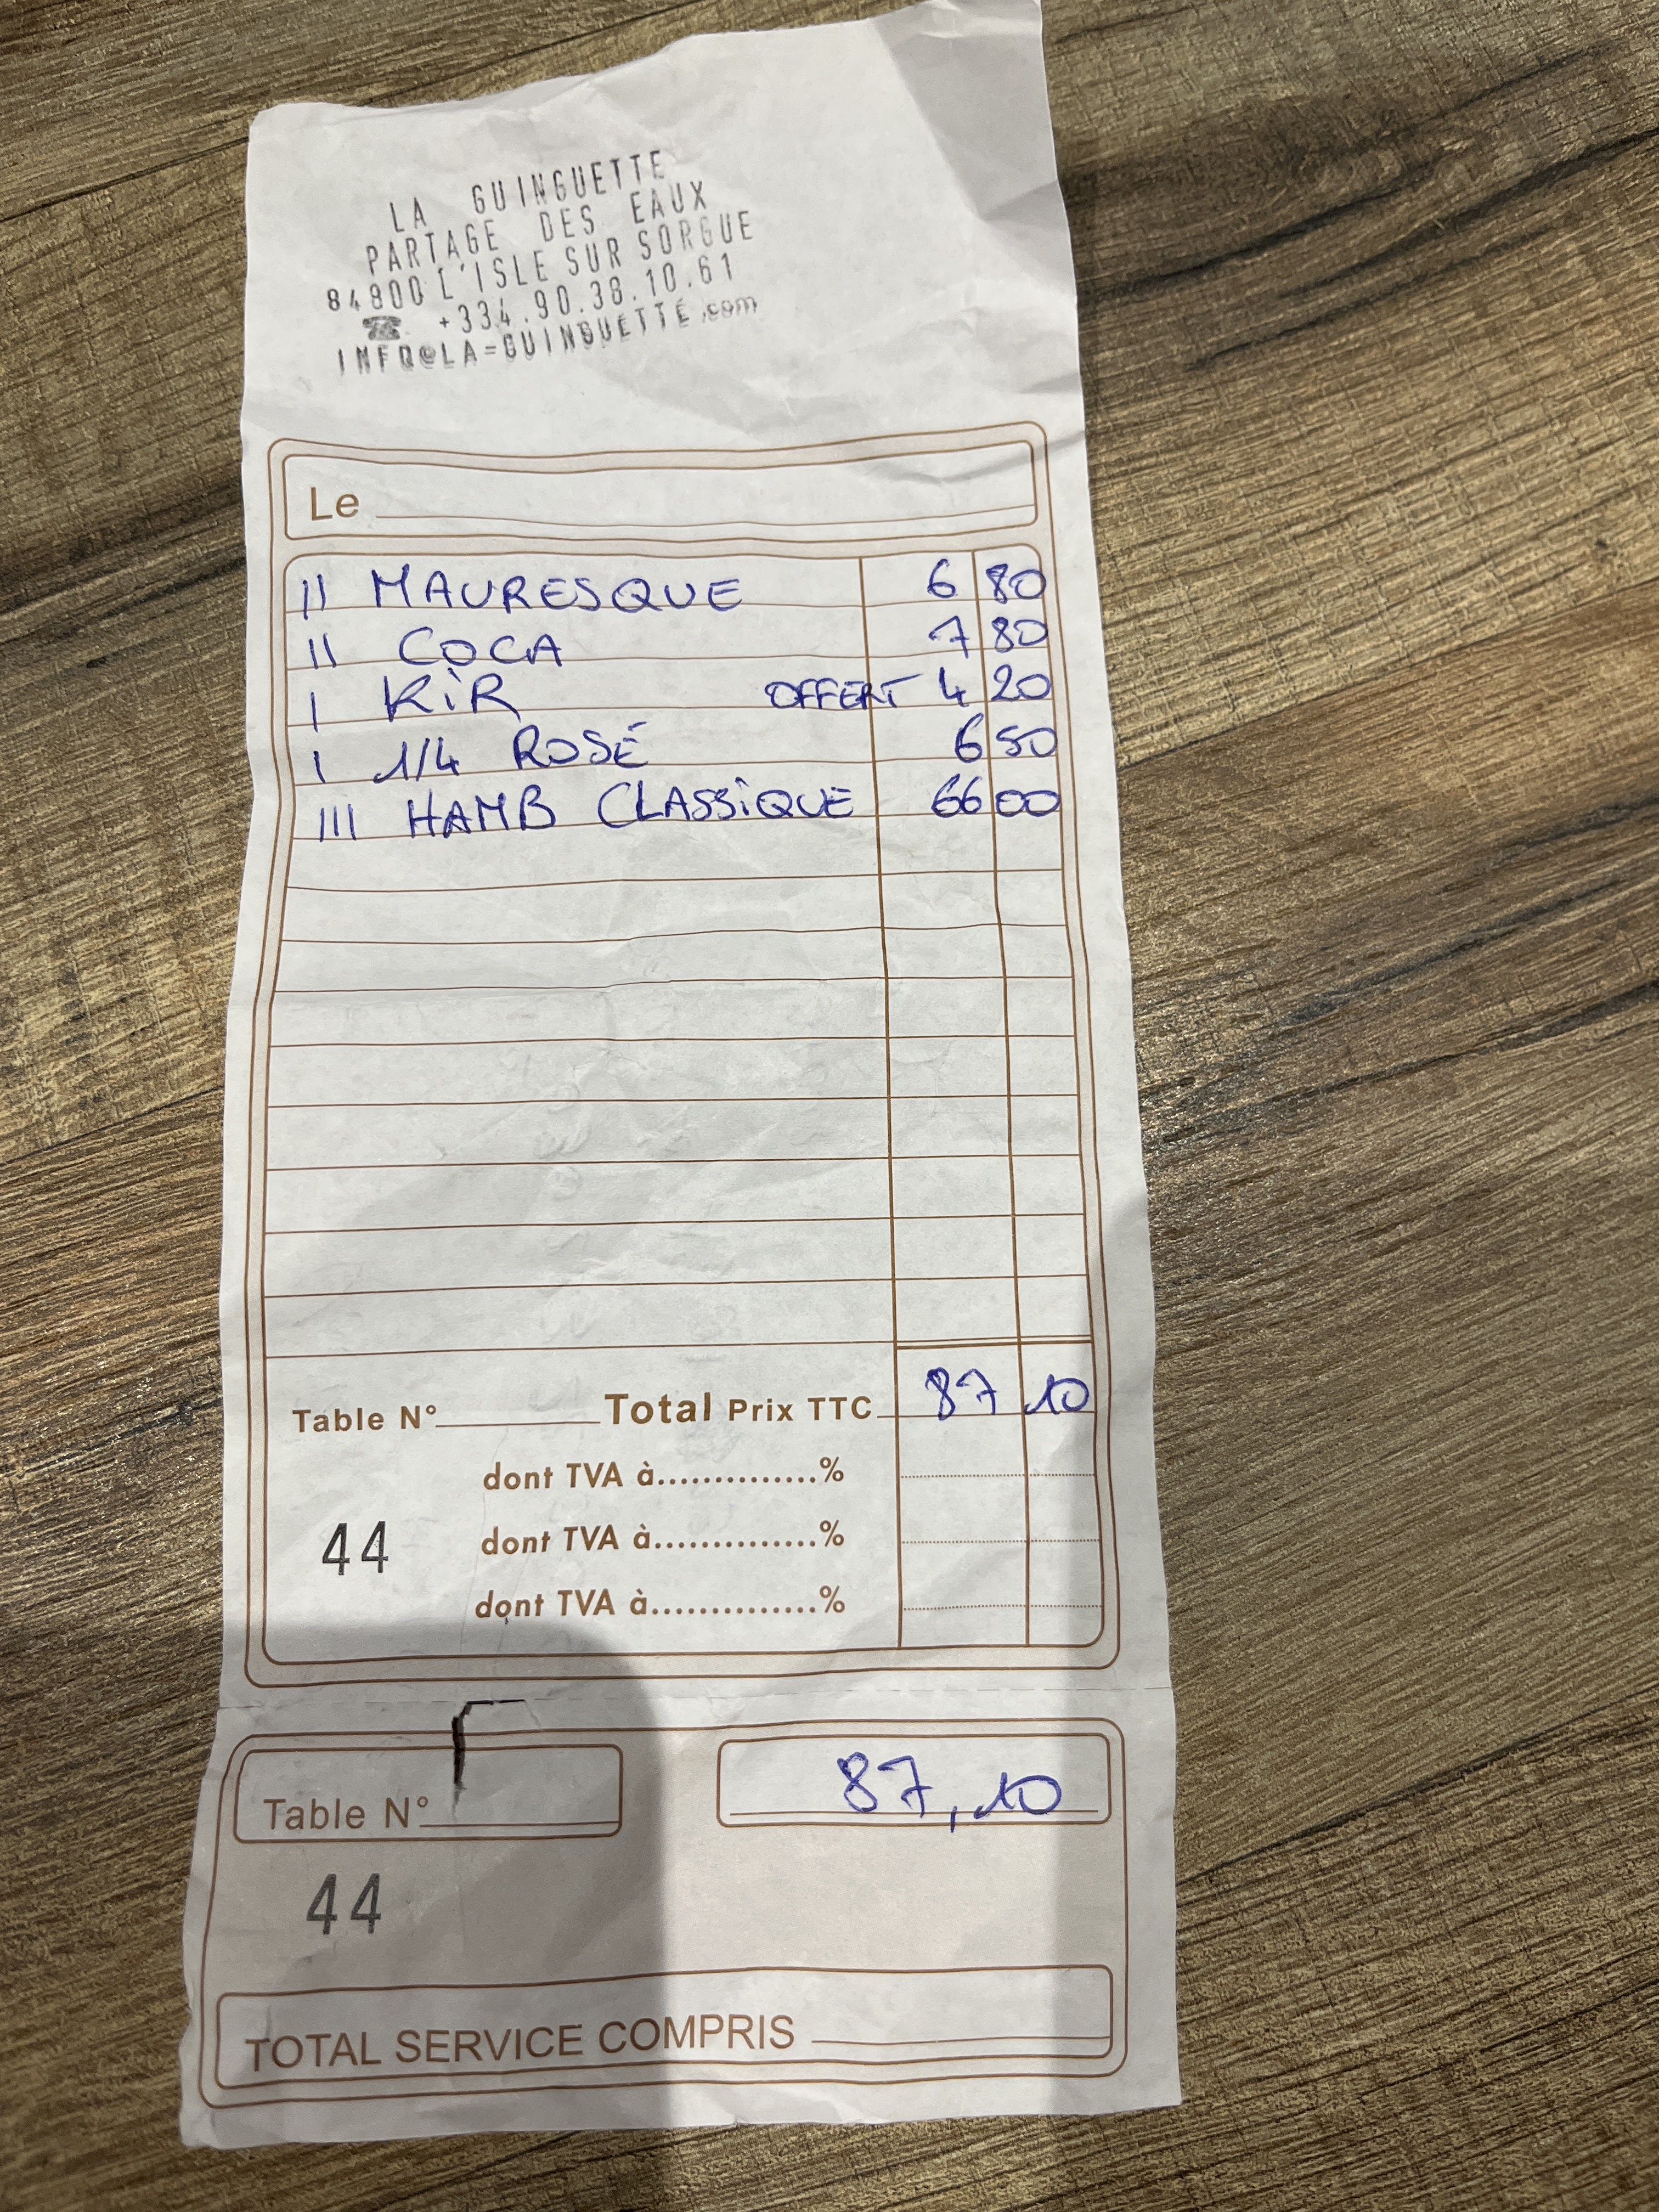 LA GUINGUETTE
PARTAGE DES EAUX
84800 L'ISLE SUR SORGUE
☎ +334.90.38.10.61
INFO@LA=GUINGUETTE.com
Le
II MAURESQUE 6 80
II COCA 7 80
I KIR OFFERT 4 20
I 1/4 ROSÉ 6 50
III HAMB CLASSIQUE 66 00
Table N° Total Prix TTC 87 10
dont TVA à..............%
44 dont TVA à..............%
dont TVA à..............%
Table N° 87,10
44
TOTAL SERVICE COMPRIS